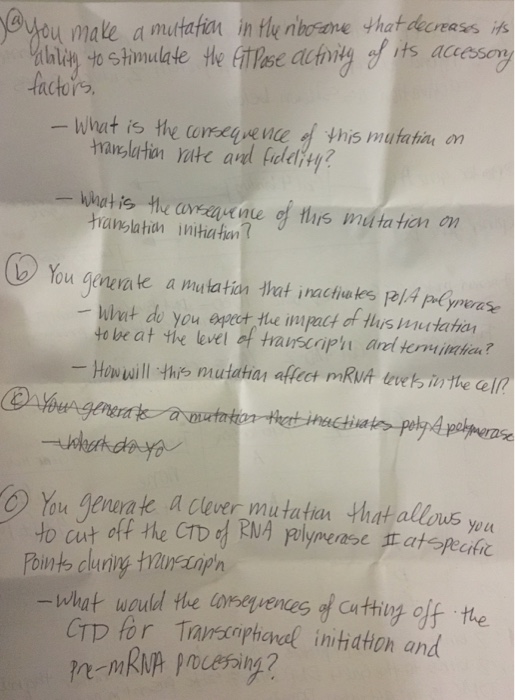 ⓐ you make a mutation in the ribosome that decreases its
ability to stimulate the GTPase activity of its accessory
factors.
- What is the consequence of this mutation on
translation rate and fidelity?
- What is the consequence of this mutation on
translation initiation?
ⓑ You generate a mutation that inactivates polA polymerase
- What do you expect the impact of this mutation
to be at the level of transcrip'n and termination?
- How will this mutation affect mRNA levels in the cell?
ⓒ You generate a mutation that inactivates poly A polymerase
- what do yo
ⓒ You generate a clever mutation that allows you
to cut off the CTD of RNA polymerase II at specific
Points during transcrip'n
- What would the consequences of cutting off the
CTD for Transcriptional initiation and
pre-mRNA processing?